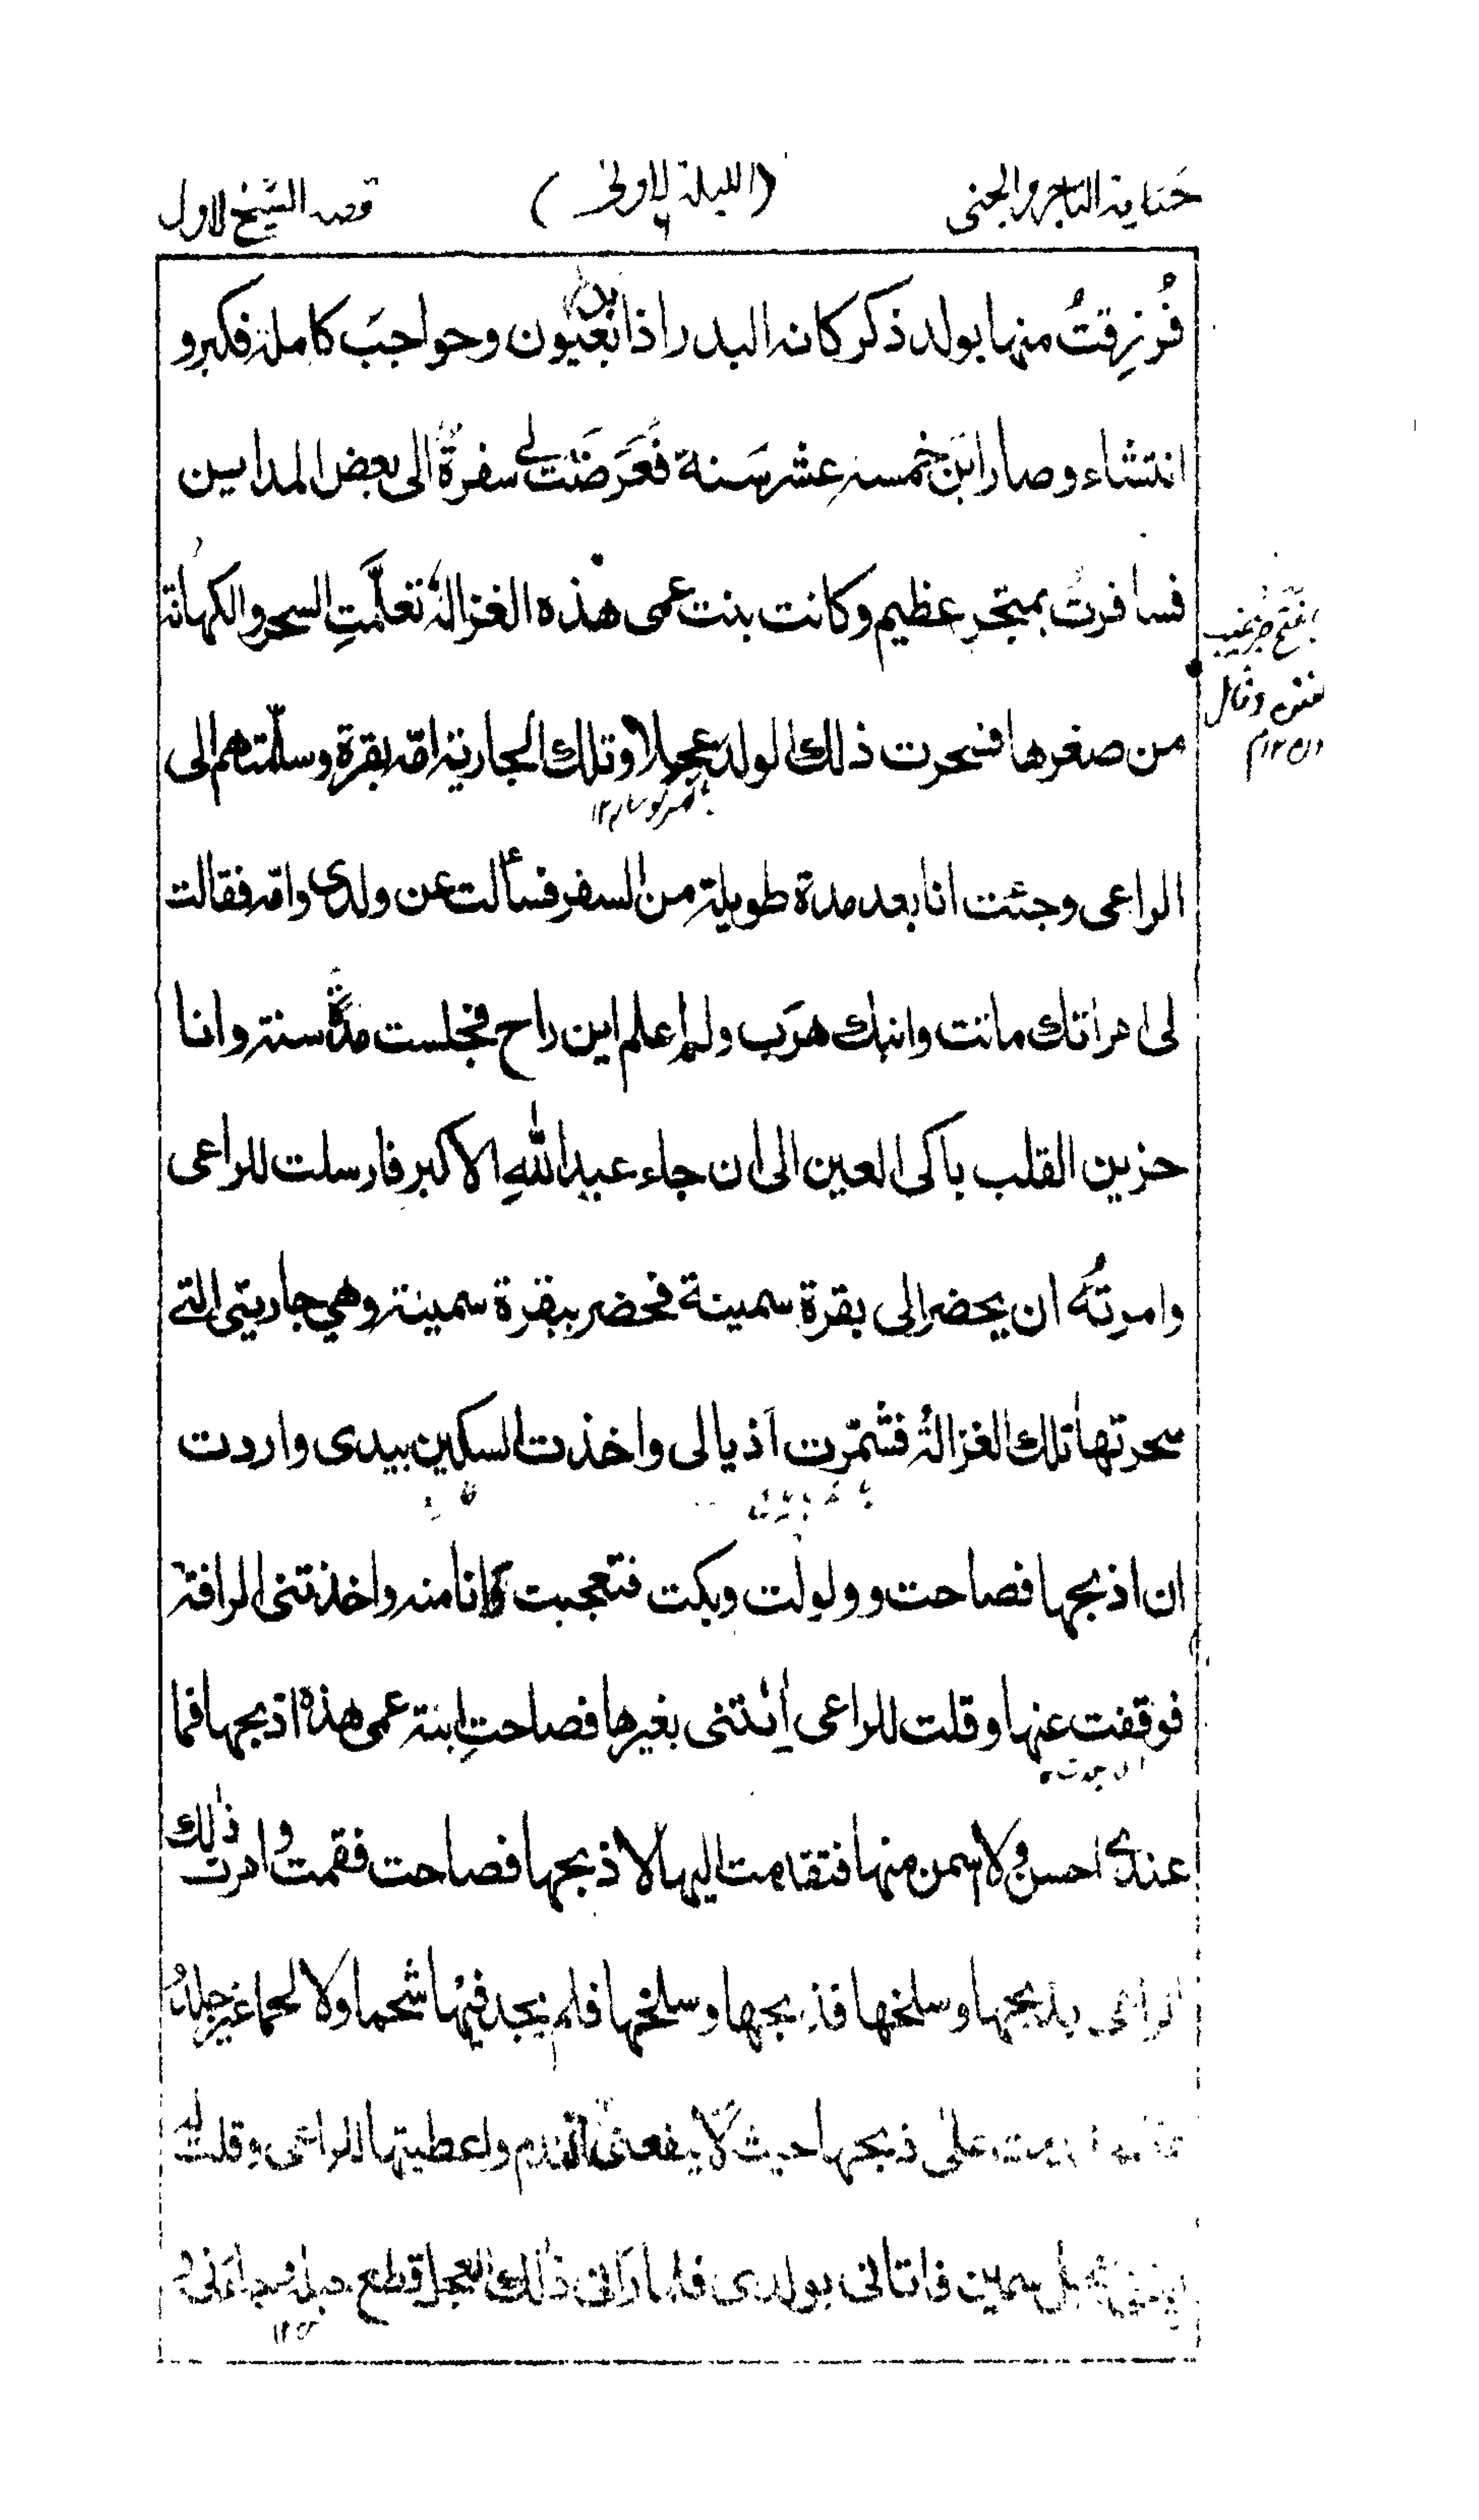 حكاية التاجر والجنى (الليلة الاولى) قصة الشيخ الاول
فرُزِقتُ منها بولد ذكر كانه البدر اذا بعيون وحواجبَ كاملة فكبر و
انتشاء وصار ابن خمسة عشر سَنة فعَرَضَت لي سفرةٌ الى بعض المداين
فسافرتُ بمتجر عظيم وكانت بنت عمى هٰذه الغزالة تعلَّمتِ السحر والكهانة
من صغرها فسحرت ذلك الولد عجلا وتلك الجارية امه بقرة وسلّمتهم الى
الراعى وجئت انا بعد مدة طويلة من السفر فسألت عن ولدى وامه فقالت
لى امراتك ماتت وابنك هرَب ولم اعلم اين راح فجلست مدّة سنة وانا
حزين القلب باكى العين الى ان جاء عيد اللهِ الاكبر فارسلت للراعى
وامرتُه ان يحضر الى بقرة سمينة فحضر ببقرة سمينة وهي جاريتى التے
سحرتها تلك الغزالةُ فشمّرت اذيالى واخذت السكين بيدى واردت
ان اذبحها فصاحت وولولت وبكت فتعجبت وانا منه واخذتنى الرافة
فوقفت عنها وقلت للراعى اِئتنى بغيرها فصاحتِ ابنة عمى هذه اذبحها فما
عندى احسن ولا اسمن منها فتقدمت اليها لاذبحها فصاحت فقمت وامرت ذلك
الراعى بذبحها وسلخها فذبحها وسلخها فلم يجد فيها شحما ولا لحما غير جلد
على ذبحها حيث لا ينفعنى الندم واعطيتها للراعى وقلت له
سمين فاتانى بولدى فلما رآنى ذلك العجل قطع حبله وجاءنى و
بفتح